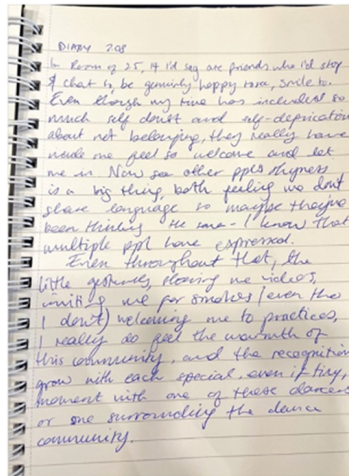 DIARY 2.08
In Room of 25, 14 I'd say are friends who I'd stop
& chat to, be genuinly happy to see, smile to.
Even though my time has included so
much self doubt and self-deprication
about not belonging, they really have
made me feel so welcome and let
me in. Now see other ppls shyness
is a big thing, both feeling we don't
share language so maybe they've
been thinking the same - I know that
multiple ppl have expressed.
Even throughout that, the
little gestures, showing me videos,
inviting me for smokes (even tho
I don't) welcoming me to practices,
I really do feel the warmth of
this community, and the recognition
grow with each special, even if tiny,
moment with one of these dancers
or one surrounding the dance
community.